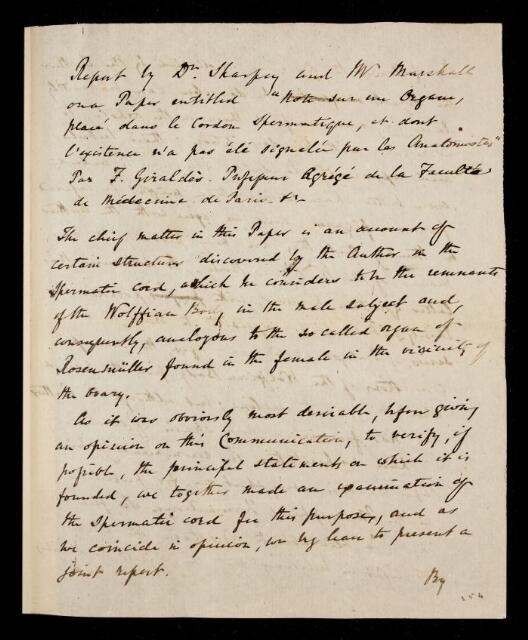 Report by Dr. Sharpey and Mr. Marshall
on a Paper entitled "Note sur un Organe,
placé dans le Cordon Spermatique, et dont
l'existence n'a pas été signalée par les Anatomistes"
Par F. Giraldès. Professeur Agrégé de la Faculté
de Médecine de Paris &c
The chief matter in this Paper is an account of
certain structures discovered by the Author in the
Spermatic cord, which he considers to be the remnants
of the Wolffian Body in the male subject and,
consequently, analogous to the so called organ of
Rosenmüller found in the female in the vicinity of
the ovary.
As it was obviously most desirable, before giving
an opinion on this Communication, to verify, if
possible, the principal statements on which it is
founded, we together made an examination of
the Spermatic cord for this purpose, and as
we coincide in opinion, we beg leave to present a
joint report.
By
254